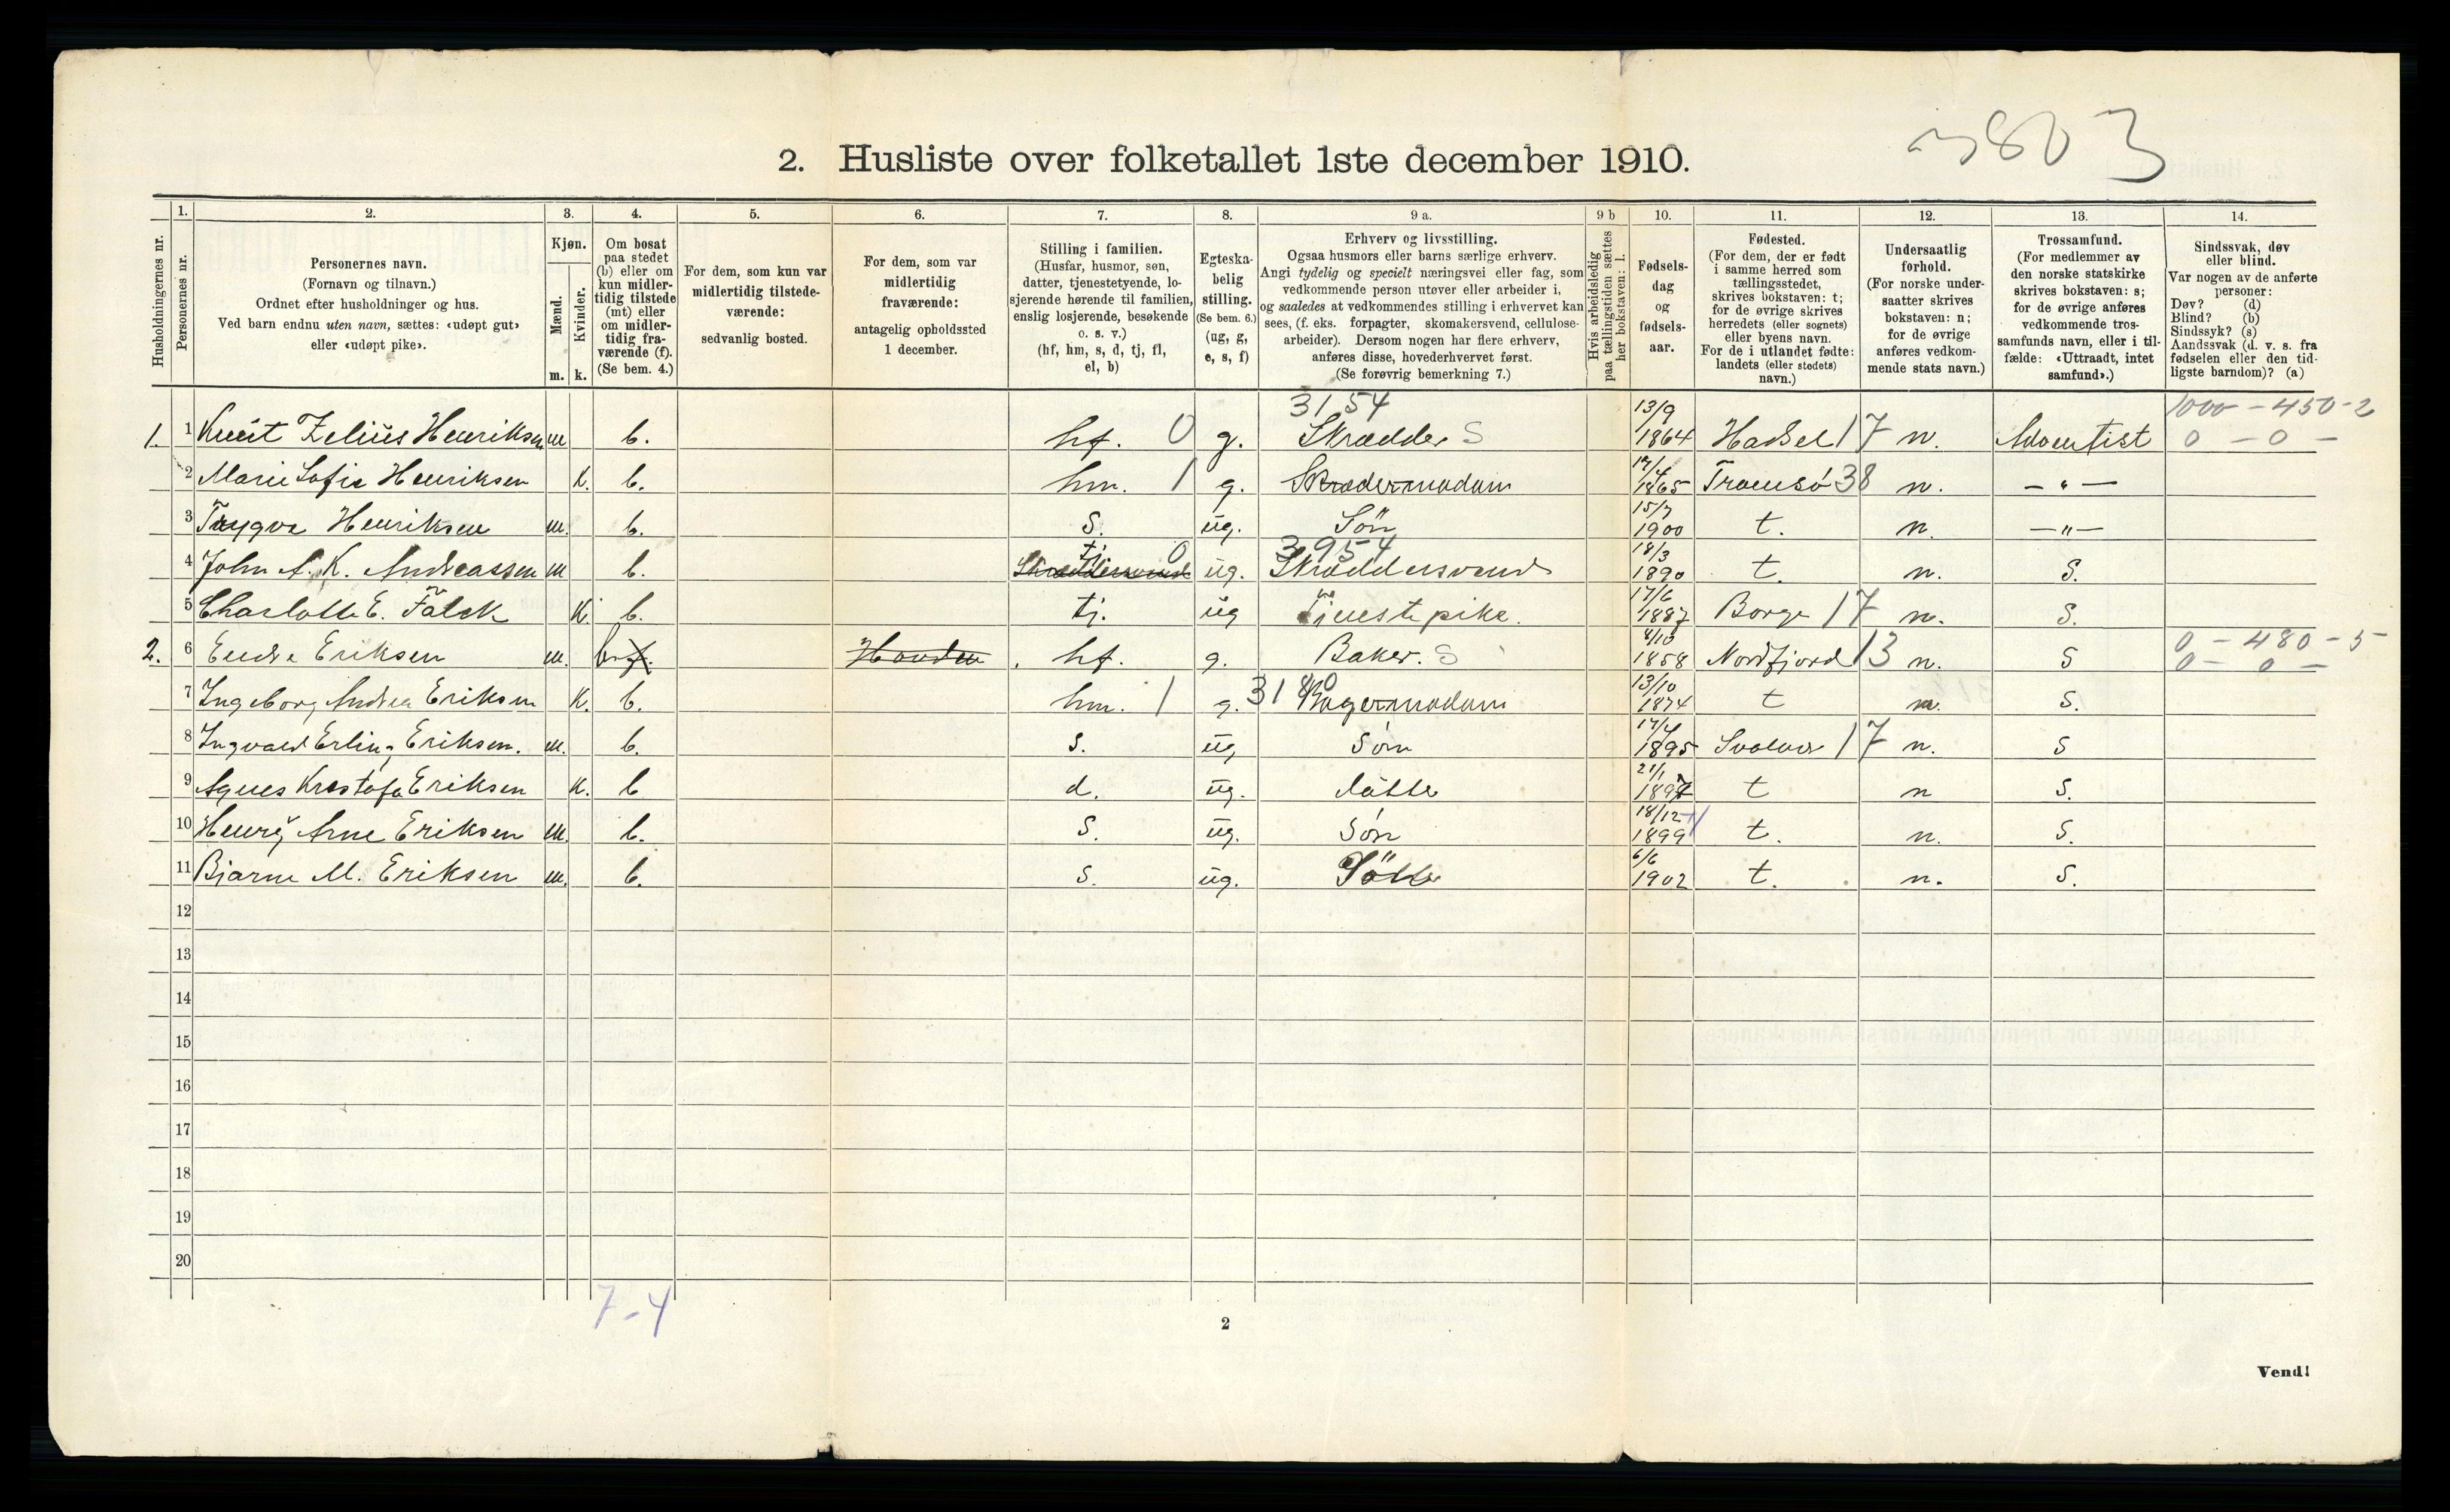 3803
2. Husliste over folketallet 1ste december 1910.
Husholdningernes nr.
1. Personernes nr.
2. Personernes navn. (Fornavn og tilnavn.) Ordnet efter husholdninger og hus. Ved barn endnu uten navn, sættes: «udøpt gut» eller «udøpt pike».
3. Kjøn. Mænd. m. Kvinder. k.
4. Om bosat paa stedet (b) eller om kun midlertidig tilstede (mt) eller om midlertidig fraværende (f). (Se bem. 4.)
5. For dem, som kun var midlertidig tilstedeværende: sedvanlig bosted.
6. For dem, som var midlertidig fraværende: antagelig opholdssted 1 december.
7. Stilling i familien. (Husfar, husmor, søn, datter, tjenestetyende, losjerende hørende til familien, enslig losjerende, besøkende o. s. v.) (hf, hm, s, d, tj, fl, el, b)
8. Egteskabelig stilling. (Se bem. 6.) (ug, g, e, s, f)
9 a. Erhverv og livsstilling. Ogsaa husmors eller barns særlige erhverv. Angi tydelig og specielt næringsvei eller fag, som vedkommende person utøver eller arbeider i, og saaledes at vedkommendes stilling i erhvervet kan sees, (f. eks. forpagter, skomakersvend, cellulosearbeider). Dersom nogen har flere erhverv, anføres disse, hovederhvervet først. (Se forøvrig bemerkning 7.)
9 b Hvis arbeidsledig paa tællingstiden sættes her bokstaven: l.
10. Fødselsdag og fødselsaar.
11. Fødested. (For dem, der er født i samme herred som tællingsstedet, skrives bokstaven: t; for de øvrige skrives herredets (eller sognets) eller byens navn. For de i utlandet fødte: landets (eller stedets) navn.)
12. Undersaatlig forhold. (For norske undersaatter skrives bokstaven: n; for de øvrige anføres vedkommende stats navn.)
13. Trossamfund. (For medlemmer av den norske statskirke skrives bokstaven: s; for de øvrige anføres vedkommende trossamfunds navn, eller i tilfælde: «Uttraadt, intet samfund».)
14. Sindssvak, døv eller blind. Var nogen av de anførte personer: Døv? (d) Blind? (b) Sindssyk? (s) Aandssvak (d. v. s. fra fødselen eller den tidligste barndom)? (a)
3154 1000 - 450 - 2
1. 1 Knut Zelius Henriksen m b. hf. 0 g. Skrædder S 13/9 1864 Hadsel 17 n. Adventist 0 - 0 -
2 Marie Sofie Henriksen K. b. hm. 1 g. Skrædermadam 17/4 1865 Tromsö 38 n. - " -
3 Trygve Henriksen m. b. S. ug. Sön 15/7 1900 t. n. - " -
4 John A. K. Andreassen m b. Skræddersvend tj 0 ug. 3954 Skræddersvend 18/3 1890 t. n. S.
5 Charlotte E. Falck K. b. tj. ug Tjenestepike. 17/6 1887 Borge 17 n. S.
2. 6 Endre Eriksen m. b. f. hf. g. Baker. S 4/10 1858 Nordfjord 13 n. S 0 - 480 - 5 0 - 0 -
7 Ingeborg Andrea Eriksen K. b. hm. 1 g. 3180 Bagermadam 13/10 1874 t n. S.
8 Ingvald Erling Eriksen. m. b. s. ug Sön 17/4 1895 Svolvær 17 n. S
9 Agnes Krestofa Eriksen K. b d. ug. datter 21/1 1897 t n S.
10 Henry Arne Eriksen m. b. S. ug. Sön 18/12 1899 t. n. S.
11 Bjarne M. Eriksen m. b. s. ug. 6/6 1902 t. n. S.
12
13
14
15
16
17
18
19
20
7-4
2
Vend!